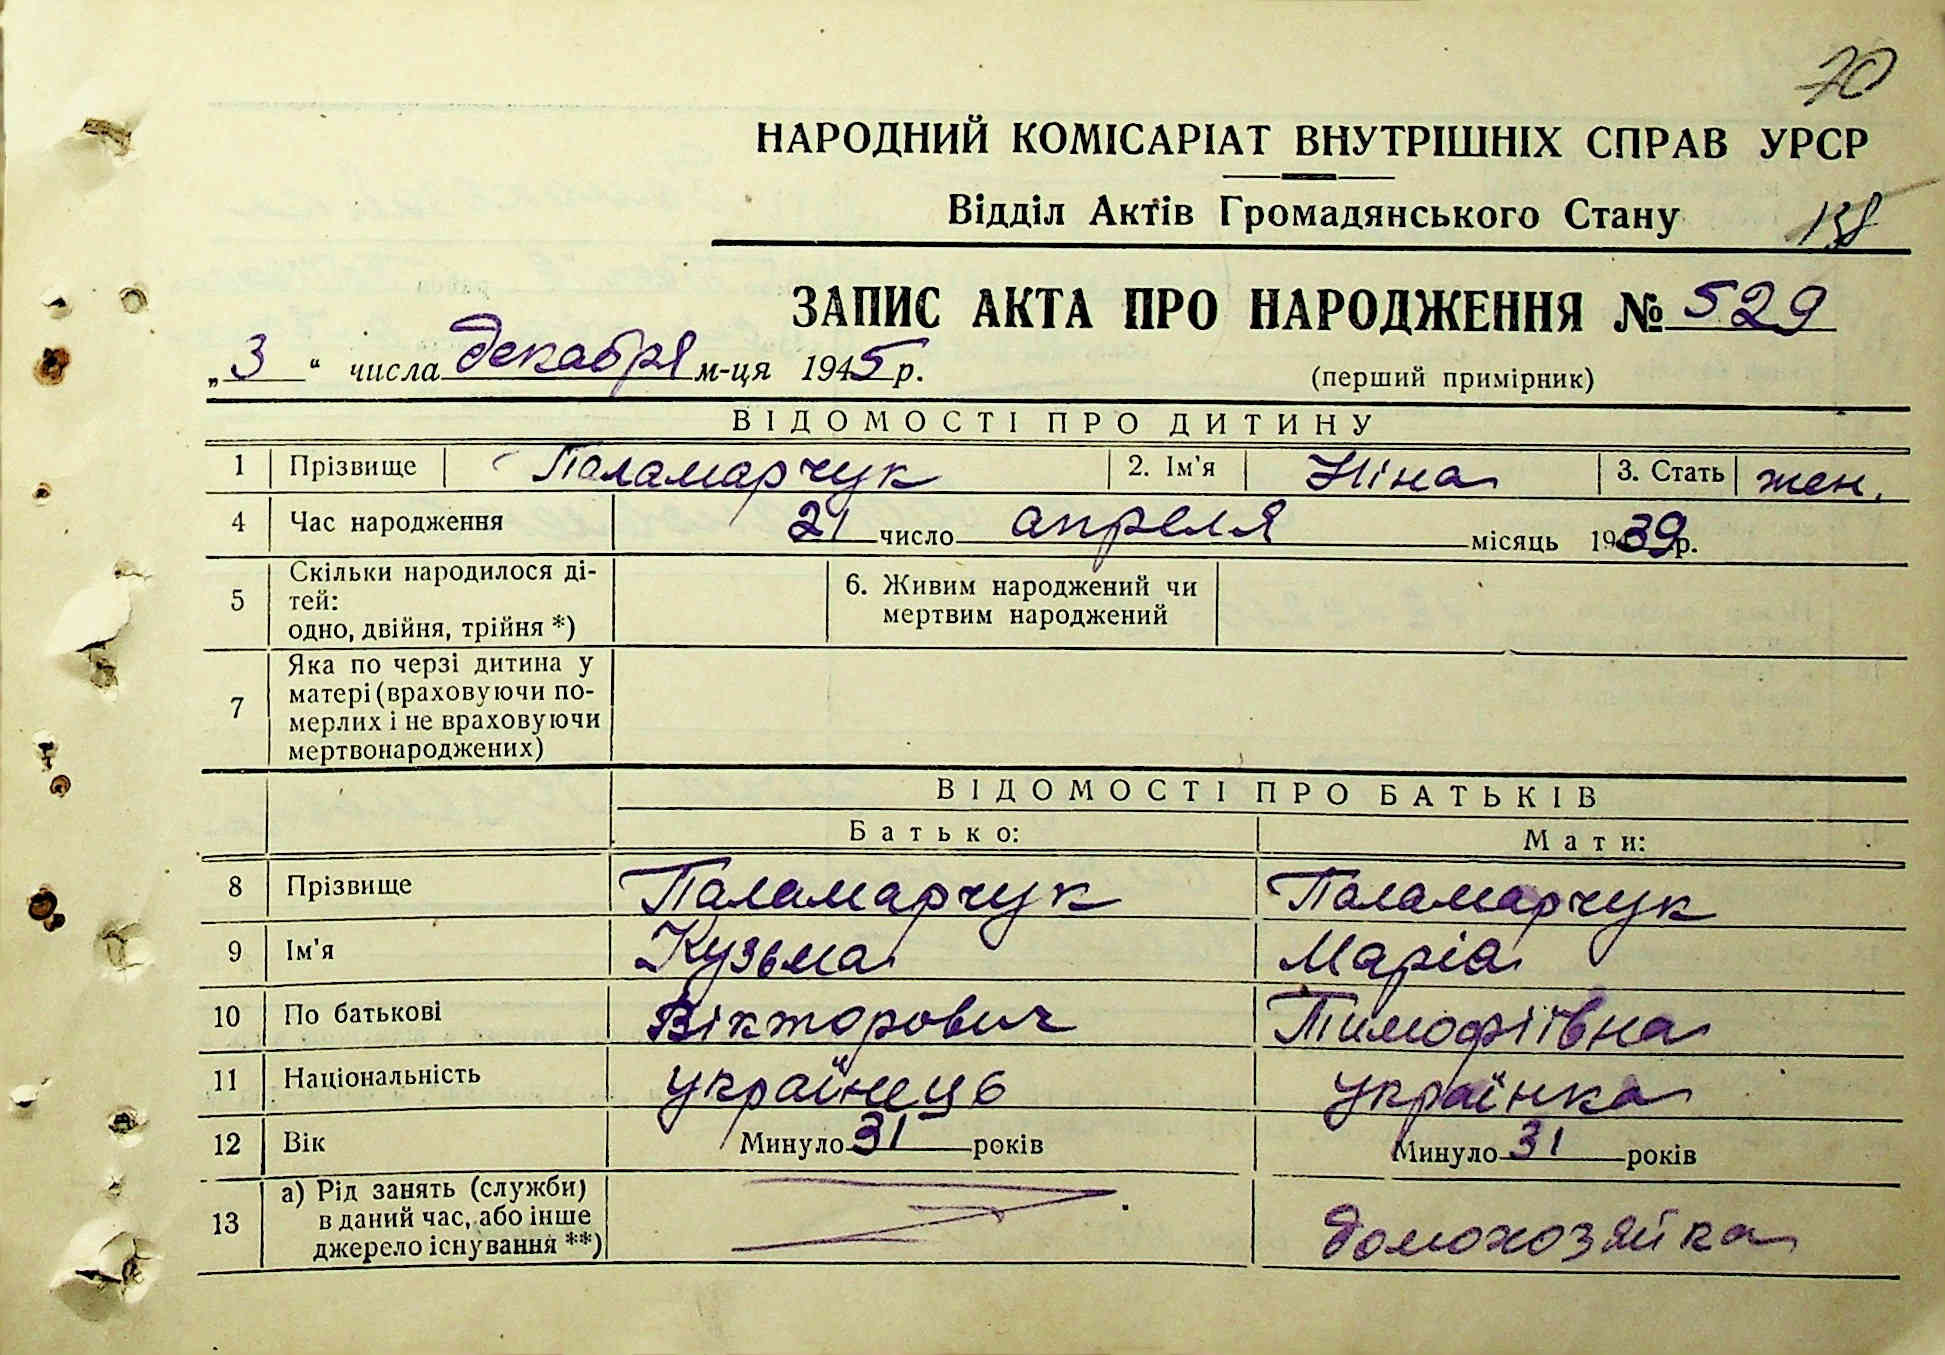 70
НАРОДНИЙ КОМІСАРІАТ ВНУТРІШНІХ СПРАВ УРСР
Відділ Актів Громадянського Стану 138
ЗАПИС АКТА ПРО НАРОДЖЕННЯ № 529
„3“ числа декабря м-ця 1945 р. (перший примірник)
ВІДОМОСТІ ПРО ДИТИНУ
1 Прізвище Паламарчук 2. Ім'я Ніна 3. Стать жен.
4 Час народження 21 число апреля місяць 1939 р.
5 Скільки народилося ді-
тей:
одно, двійня, трійня *)
6. Живим народжений чи
мертвим народжений
7 Яка по черзі дитина у
матері (враховуючи по-
мерлих і не враховуючи
мертвонароджених)
ВІДОМОСТІ ПРО БАТЬКІВ
Батько: Мати:
8 Прізвище Паламарчук Паламарчук
9 Ім'я Кузьма Маріа
10 По батькові Вікторович Тимофіївна
11 Національність українець українка
12 Вік Минуло 31 років Минуло 31 років
13 а) Рід занять (служби)
в даний час, або інше
джерело існування **)
домохозяйка